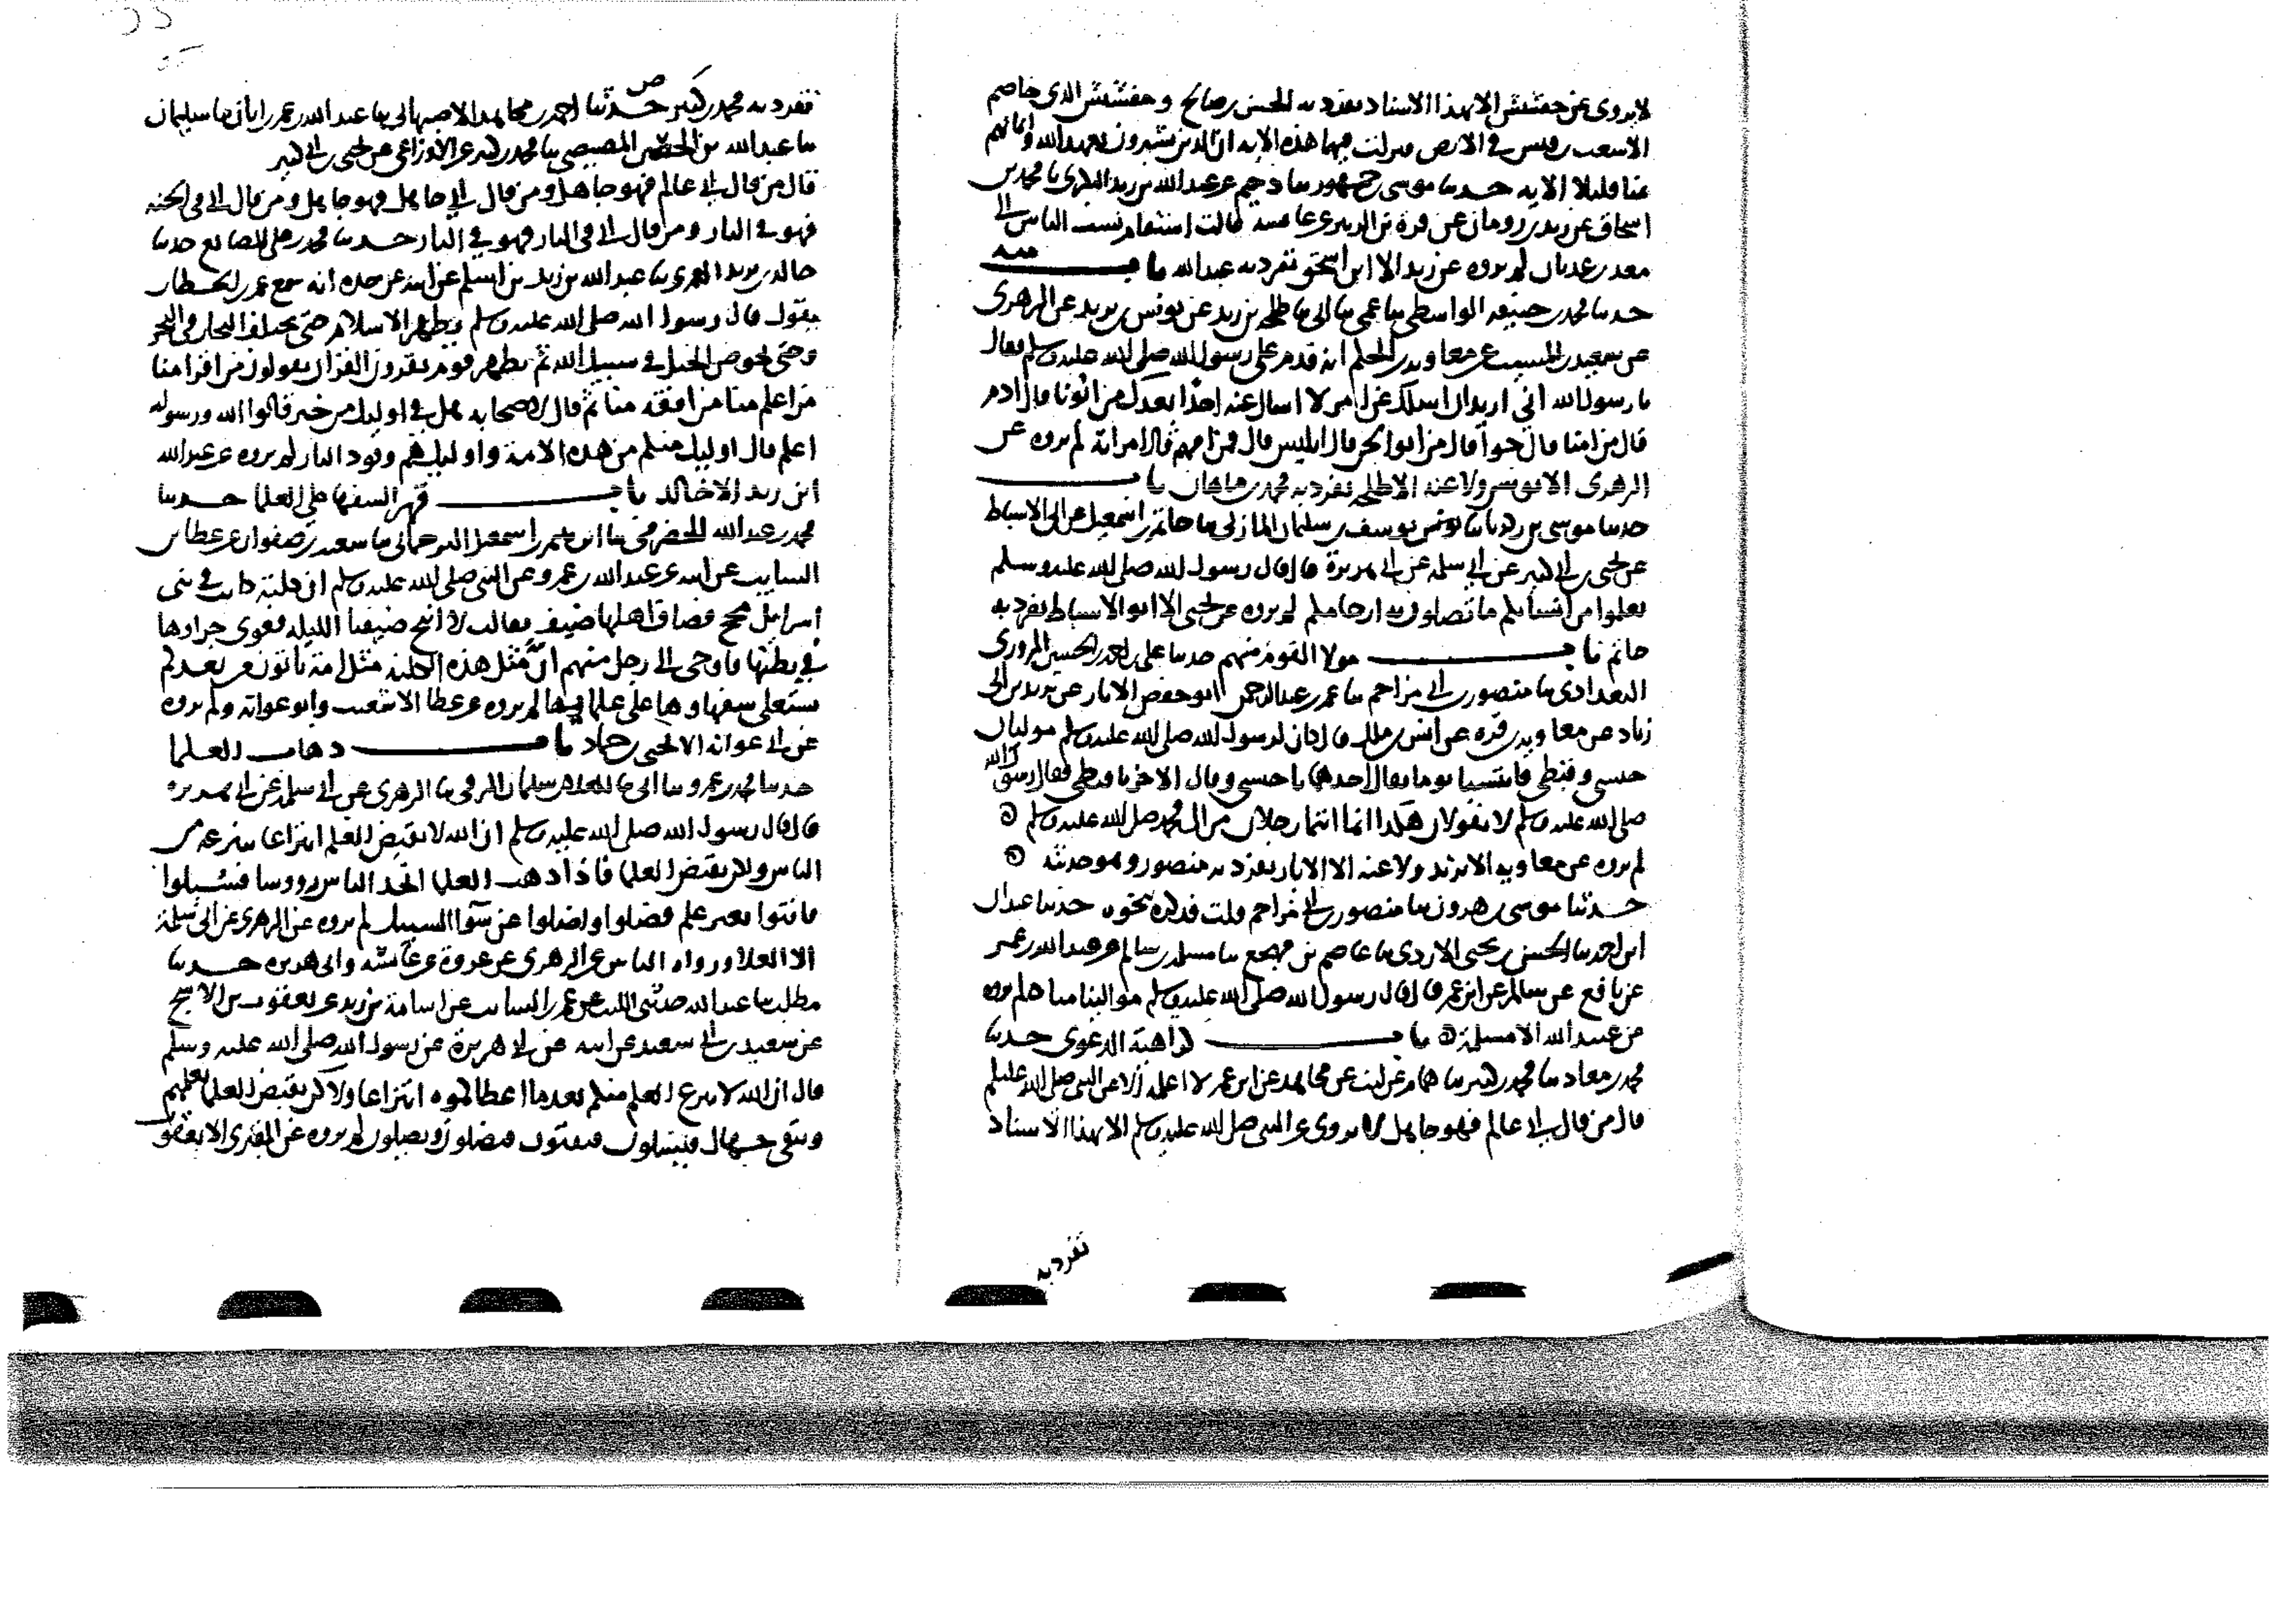 لا يروى عن جفشيش الا بهذا الاسناد تفرد به الحسن بن صالح وجفشيش الذي خاصم
الاشعث بن قيس في الارض فنزلت فيهما هذه الاية ان الذين يشترون بعهد الله وايمانهم
ثمنا قليلا الاية حدثنا موسى بن جمهور ثنا دحيم عن عبد الله بن يزيد البكري نا محمد بن
اسحاق عن يزيد بن رومان عن عروة بن الزبير عن عائشة قالت استقام نسب الناس الى
معد بن عدنان لم يروه عن يزيد الا ابن اسحق تفرد به عبد الله باب منه
حدثنا محمد بن حنيفه الواسطي ثنا عمي ثنا ابي ثنا طلحة بن زيد عن يونس بن يزيد عن الزهري
عن سعيد بن المسيب عن معاوية بن الحكم انه قدم على رسول الله صلى الله عليه وسلم فقال
يا رسول الله اني اريد ان اسلك عن امر لا اسال عنه احدا بعدك من ابونا قال ادم
قال من امنا قال حوا قال من ابو الجن قال ابليس قال فمن امهم قال امراته لم يروه عن
الزهري الا يونس ولا عنه الا طلحة تفرد به محمد بن ماهان باب
حدثنا موسى بن زكريا ثنا يونس بن يوسف بن سليمان المازني ثنا حاتم بن اسمعيل عن ابي الاسباط
عن يحيى بن ابي كثير عن ابي سلمة عن ابي هريرة قال قال رسول الله صلى الله عليه وسلم
تعلموا من انسابكم ما تصلون به ارحامكم لم يروه عن يحيى الا ابو الاسباط تفرد به
حاتم باب مولا القوم منهم حدثنا علي بن احمد بن الحسين المروزي
البغدادي ثنا منصور بن ابي مزاحم ثنا عمر بن عبد الرحمن ابو حفص الابار عن يزيد بن ابي
زياد عن معاوية بن قرة عن انس بن ملك قال كان لرسول الله صلى الله عليه وسلم موليان
حبشي وقبطي فاستسبا يوما فقال احدهما يا حبشي وقال الاخر يا قبطي فقال رسول الله
صلى الله عليه وسلم لا تقولان هكذا انما انتما رجلان من ال محمد صلى الله عليه وسلم
لم يروه عن معاوية الا يزيد ولا عنه الا الابار تفرد به منصور وهو حديثه
حدثنا موسى بن هرون ثنا منصور بن ابي مزاحم قلت فذكر نحوه حدثنا عبدان
ابن احمد ثنا الحسن بن يحيى الازدي ثنا عاصم بن مهجع ثنا مسلم بن سالم عن عبد الله بن عمر
عن نافع عن سالم عن ابن عمر قال قال رسول الله صلى الله عليه وسلم موالينا منا لم يروه
عن عبيد الله الا مسلمة باب كراهية الدعوى حدثنا
محمد بن معاذ ثنا محمد بن كثير ثنا همام عن ليث عن مجاهد عن ابن عمر لا اعلمه الا عن النبي صلى الله عليه وسلم
قال من قال اني عالم فهو جاهل لا يروى عن النبي صلى الله عليه وسلم الا بهذا الاسناد
تفرد به
تفرد به محمد بن كثير حدثنا احمد بن مجاهد الاصبهاني ثنا عبد الله بن عمر بن ابان ثنا سليمان
ثنا عبد الله بن الحصين المصيصي ثنا محمد بن كثير عن الاوزاعي عن يحيى بن ابي كثير
قال من قال اني عالم فهو جاهل ومن قال اني جاهل فهو جاهل ومن قال اني في الجنه
فهو في النار ومن قال اني في النار فهو في النار حدثنا محمد بن علي الصايغ حدثنا
خالد بن يزيد العمري ثنا عبد الله بن زيد بن اسلم عن ابيه عن جده انه سمع عمر بن الخطاب
يقول قال رسول الله صلى الله عليه وسلم يظهر الاسلام حتى يختلف التجار في البحر
وحتى تخوض الخيل في سبيل الله ثم يظهر قوم يقرون القران يقولون من اقرا منا
من اعلم منا من افقه منا ثم قال لاصحابه هل في اوليك من خير قالوا الله ورسوله
اعلم قال اوليك منكم من هذه الامة واوليك هم وقود النار لم يروه عن عبد الله
ابن زيد الا خالد باب قهر السفها على العلما حدثنا
محمد بن عبد الله الحضرمي ثنا ابراهيم بن اسمعيل الترجماني ثنا سعيد بن صفوان عن عطا بن
السايب عن ابيه عن عبد الله بن عمرو عن النبي صلى الله عليه وسلم ان كلبة كانت في بني
اسرائيل مجح فضاف اهلها ضيف فقالت لا انبح ضيفنا الليله فعوى جراوها
في بطنها فاوحى الى رجل منهم ان مثل هذه الكلبه مثل امة ياتون من بعدكم
يستعلي سفهاوها على علمايها لم يروه عن عطا الا شعيب وابو عوانه ولم يروه
عن ابي عوانه الا يحيى بن حماد باب ذهاب العلما
حدثنا محمد بن عمرو ثنا ابي ثنا العلاء بن سليمان الرقي ثنا الزهري عن ابي سلمة عن ابي هريره
قال قال رسول الله صلى الله عليه وسلم ان الله لا يقبض العلم انتزاعا ينزعه من
الناس ولكن يقبض العلما فاذا ذهب العلما اتخذ الناس رووسا فسيلوا
فافتوا بغير علم فضلوا واضلوا عن سوا السبيل لم يروه عن الزهري عن ابي سلمة
الا العلا ورواه الناس عن الزهري عن عروة عن عائشه وابي هريره حدثنا
مطلب ثنا عبد الله حدثني الليث عن عمر بن السايب عن اسامة بن زيد عن يعقوب بن الاشج
عن سعيد بن ابي سعيد عن ابيه عن ابي هريرة عن رسول الله صلى الله عليه وسلم
قال ان الله لا ينزع العلم منكم بعد ما اعطاكموه انتزاعا ولاكن يقبض العلما بعلمهم
ويبقى جهال فيسلون فيفتون فيضلون ويضلون لم يروه عن المقبري الا يعقوب